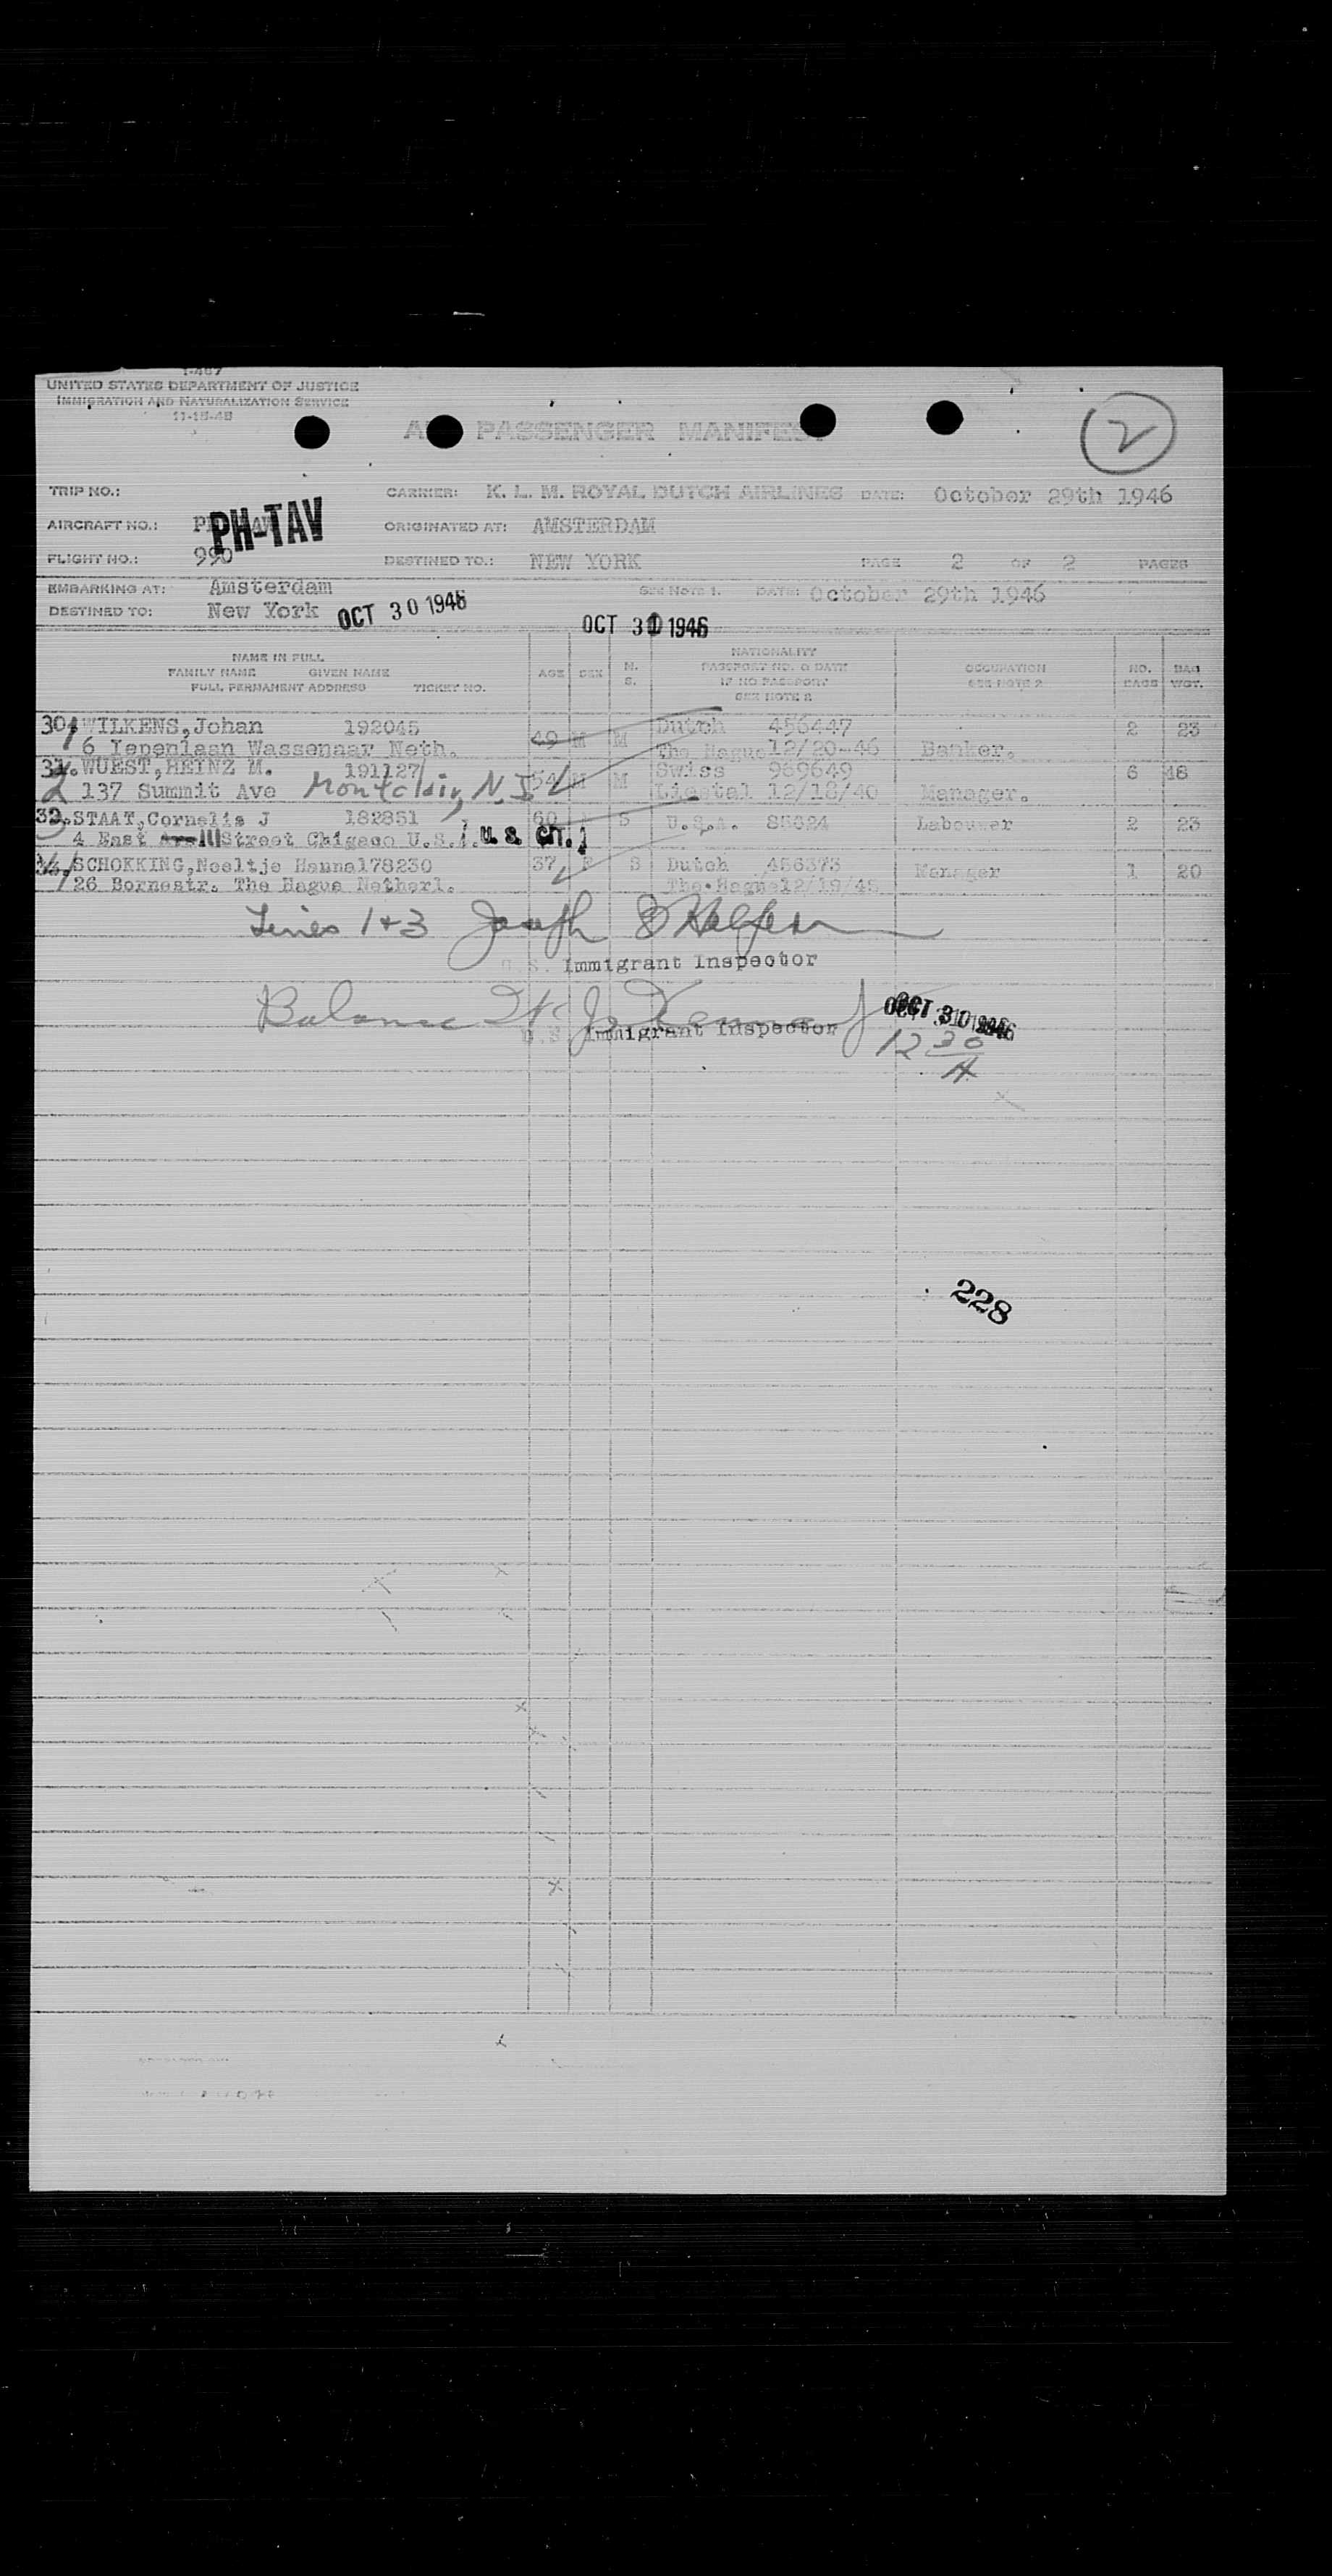 I-467
UNITED STATES DEPARTMENT OF JUSTICE
IMMIGRATION AND NATURALIZATION SERVICE
11-15-45
2
PASSENGER MANIFEST
TRIP NO.: CARRIER: K. L. M. ROYAL DUTCH AIRLINES DATE: October 29th 1946
AIRCRAFT NO.: PH-TAV ORIGINATED AT: AMSTERDAM
FLIGHT NO.: 990 DESTINED TO.: NEW YORK PAGE 2 OF 2 PAGES
EMBARKING AT: Amsterdam SEE NOTE 1. DATE: October 29th 1946
DESTINED TO: New York OCT 30 1946 OCT 30 1946
NAME IN FULL
FAMILY NAME GIVEN NAME
FULL PERMANENT ADDRESS TICKET NO.
AGE SEX M. S.
NATIONALITY
PASSPORT NO. & DATE
IF NO PASSPORT
SEE NOTE 2
OCCUPATION
SEE NOTE 2
NO. BAGS BAG WGT.
30. 1 WILKENS, Johan 192045 49 M M Dutch 456447 2 23
6 Iepenlaan Wassenaar Neth. The Hague 12/20-46 Banker.
31. WUEST, HEINZ M. 191127 54 M M Swiss 969649 6 48
2 137 Summit Ave Montclair, N.J. Liestal 12/18/40 Manager.
32. STAAT, Cornelis J 182851 60 S U.S.A. 85324 Labouwer 2 23
4 East 111 Street Chigaco U.S. U.S. CIT.
SCHOKKING, Neeltje Hanna 178230 37 F S Dutch 456373 Manager 1 20
26 Bornestr. The Hague Netherl. The Hague 12/19/45
Lines 1+3 Joseph
U.S. Immigrant Inspector
Balance
U.S. Immigrant Inspector OCT 30 1946
12 30
A
228